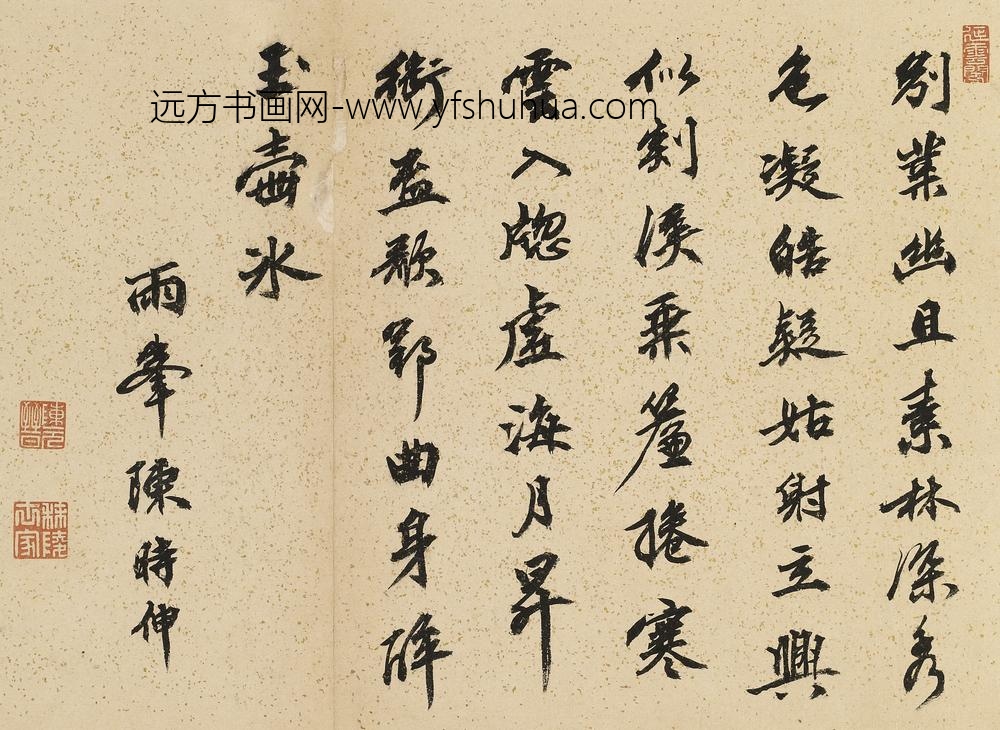 別業幽且素林深秀
色凝皓疑姑射立興
似剡溪乘簾捲寒
雲入牕虛海月昇
銜盃歌郢曲身醉
玉壺冰
雨峯陳時伸
秣陵世家
远方书画网-www.yfshuhua.com